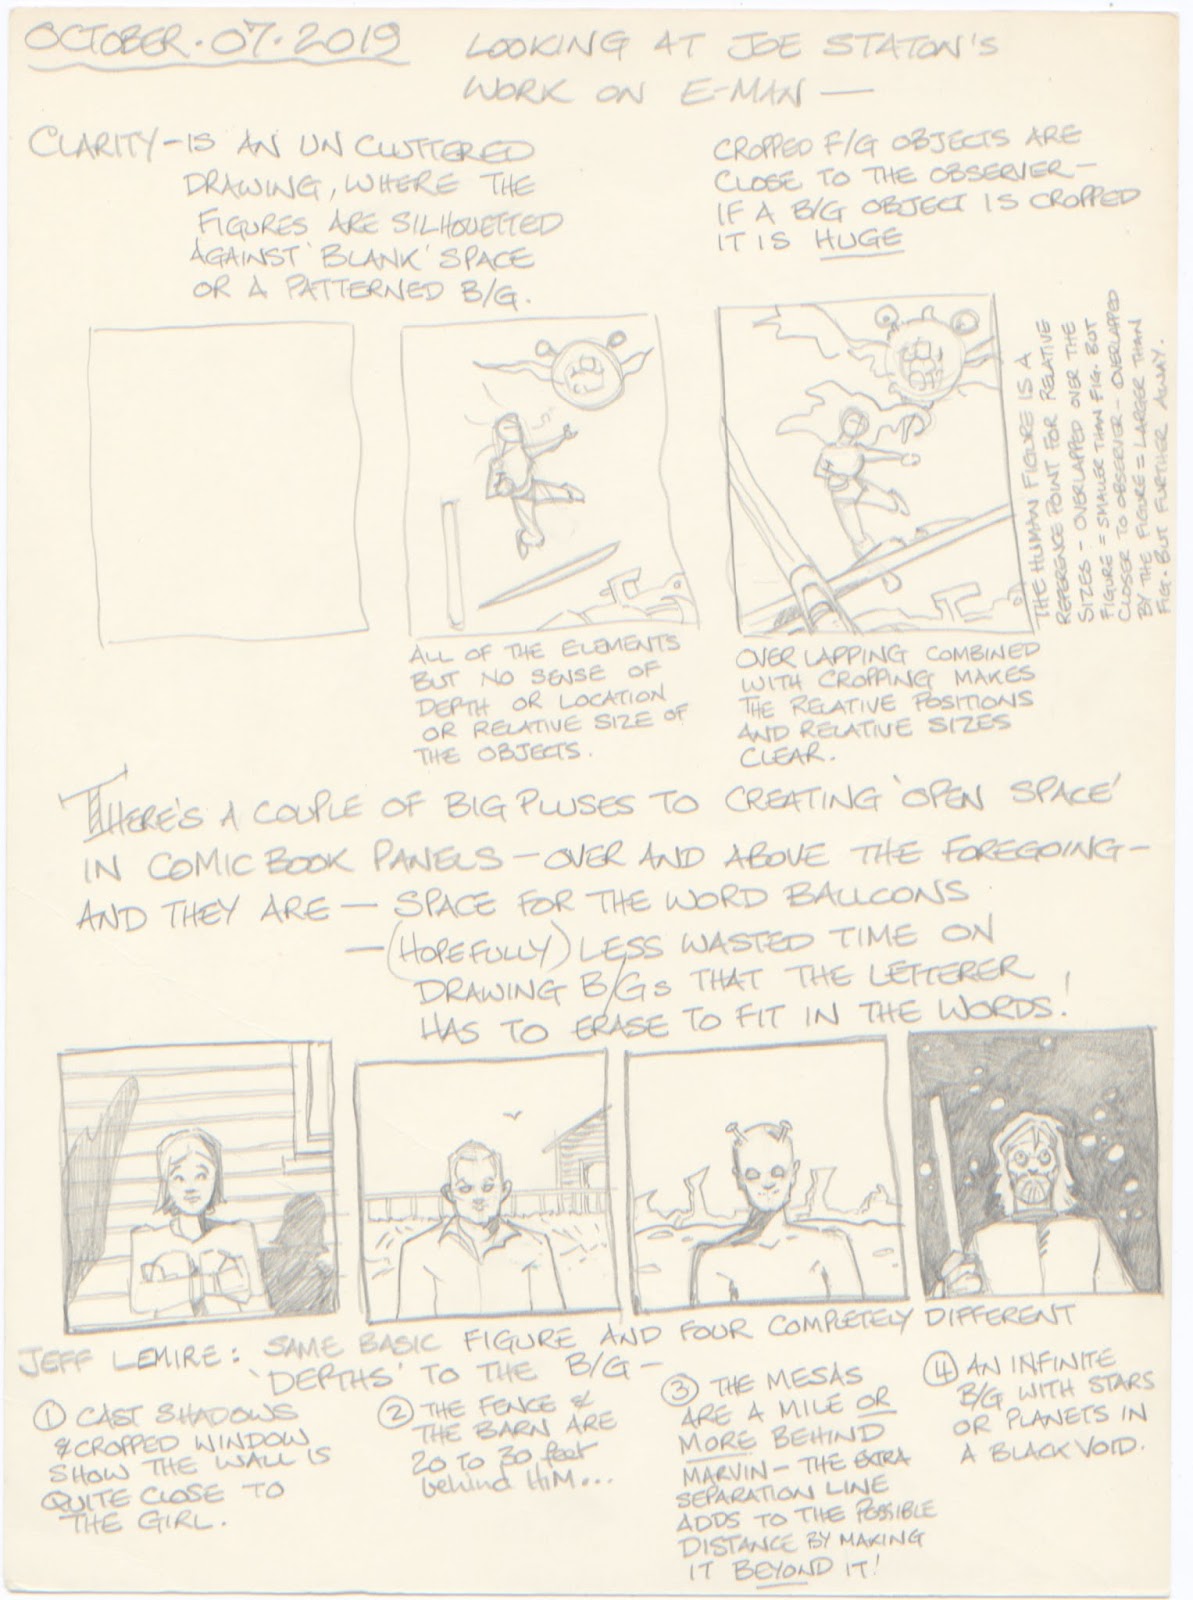 OCTOBER.07.2019
LOOKING AT JOE STATON'S
WORK ON E-MAN —
CLARITY - IS AN UNCLUTTERED
DRAWING, WHERE THE
FIGURES ARE SILHOUETTED
AGAINST 'BLANK' SPACE
OR A PATTERNED B/G.
CROPPED F/G OBJECTS ARE
CLOSE TO THE OBSERVER —
IF A B/G OBJECT IS CROPPED
IT IS HUGE
THE HUMAN FIGURE IS A
REFERENCE POINT FOR RELATIVE
SIZES - OVERLAPPED OVER THE
FIGURE = SMALLER THAN FIG. BUT
CLOSER TO OBSERVER - OVERLAPPED
BY THE FIGURE = LARGER THAN
FIG. BUT FURTHER AWAY.
ALL OF THE ELEMENTS
BUT NO SENSE OF
DEPTH OR LOCATION
OR RELATIVE SIZE OF
THE OBJECTS.
OVERLAPPING COMBINED
WITH CROPPING MAKES
THE RELATIVE POSITIONS
AND RELATIVE SIZES
CLEAR.
THERE'S A COUPLE OF BIG PLUSES TO CREATING 'OPEN SPACE'
IN COMIC BOOK PANELS — OVER AND ABOVE THE FOREGOING —
AND THEY ARE — SPACE FOR THE WORD BALLOONS
— (HOPEFULLY) LESS WASTED TIME ON
DRAWING B/Gs THAT THE LETTERER
HAS TO ERASE TO FIT IN THE WORDS!
JEFF LEMIRE: SAME BASIC FIGURE AND FOUR COMPLETELY DIFFERENT
'DEPTHS' TO THE B/G —
① CAST SHADOWS
& CROPPED WINDOW
SHOW THE WALL IS
QUITE CLOSE TO
THE GIRL.
② THE FENCE &
THE BARN ARE
20 TO 30 feet
behind HIM...
③ THE MESAS
ARE A MILE OR
MORE BEHIND
MARVIN — THE EXTRA
SEPARATION LINE
ADDS TO THE POSSIBLE
DISTANCE BY MAKING
IT BEYOND IT!
④ AN INFINITE
B/G WITH STARS
OR PLANETS IN
A BLACK VOID.